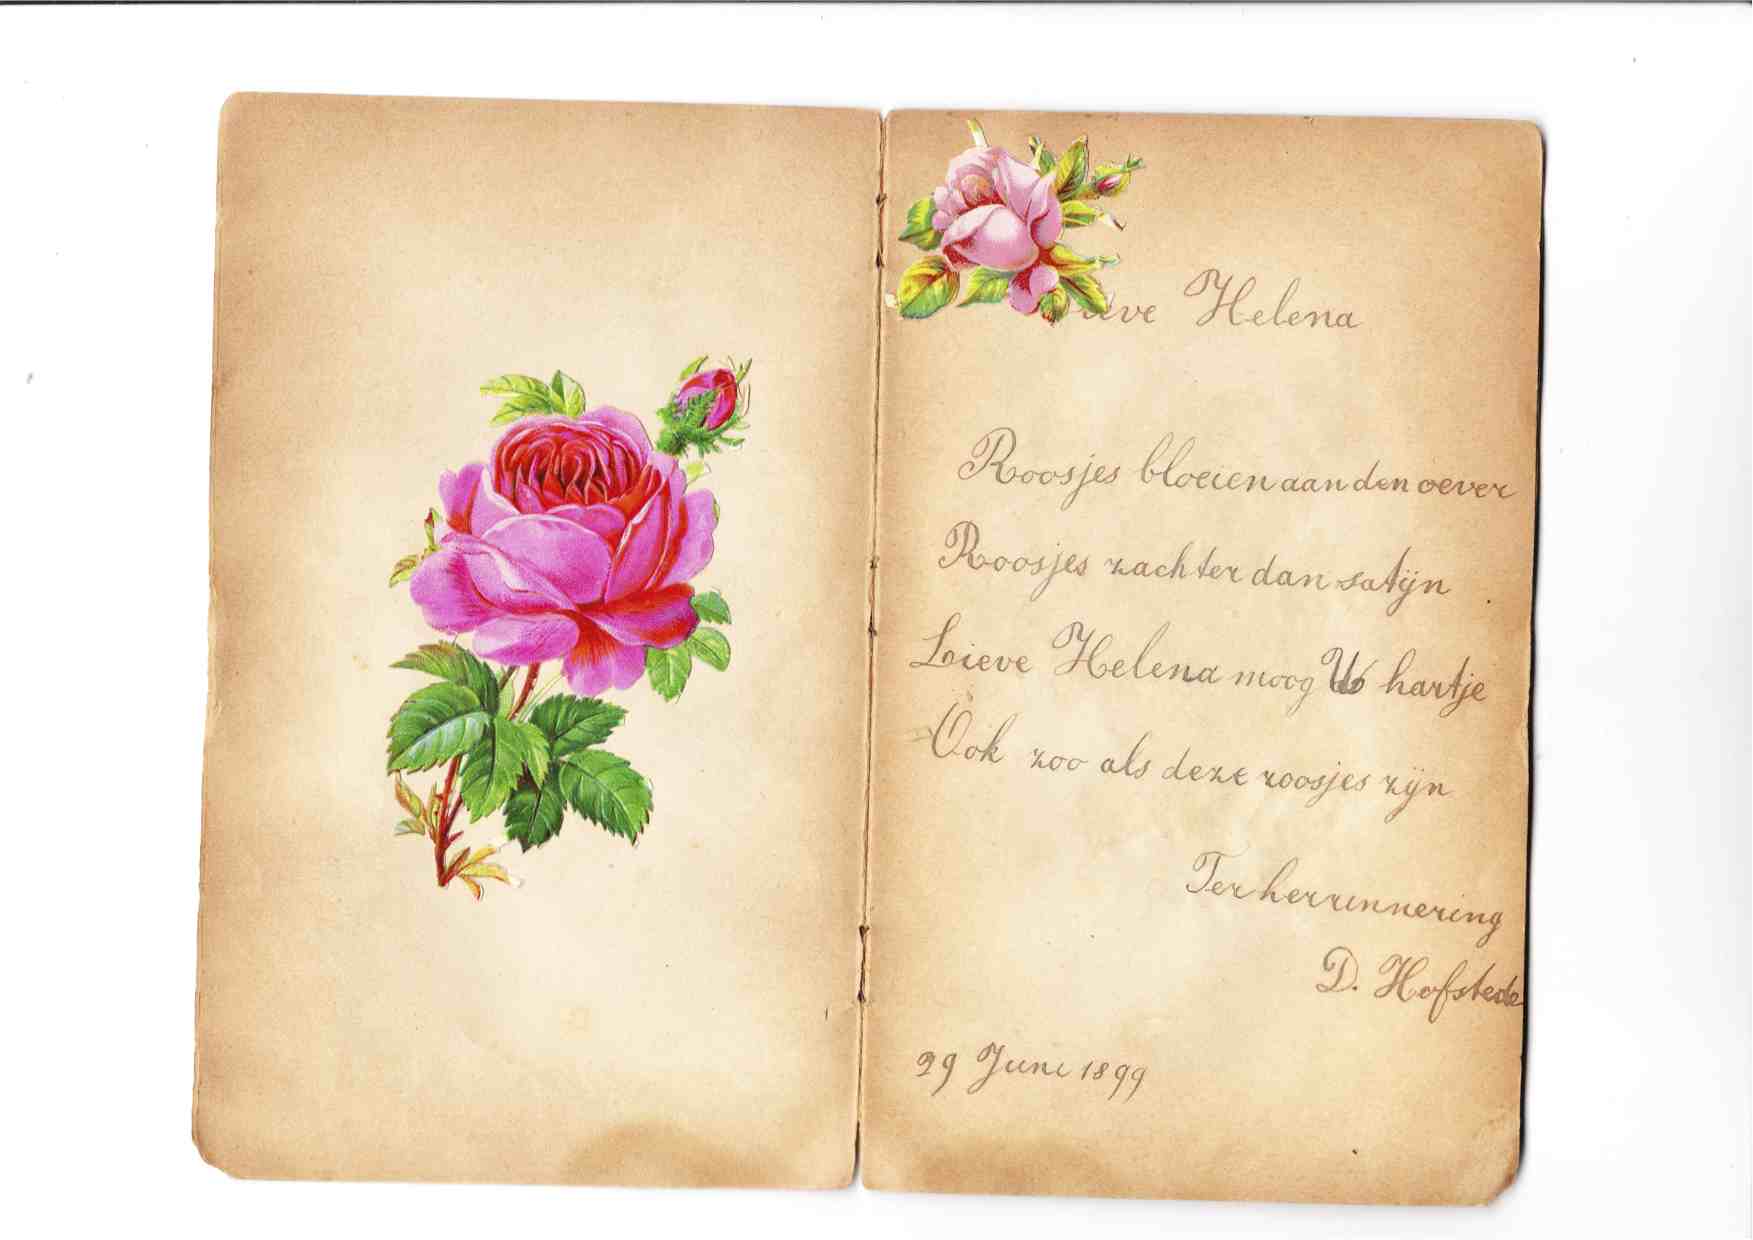 Lieve Helena
Roosjes bloeien aan den oever
Roosjes zachter dan satijn
Lieve Helena moog U hartje
Ook zoo als deze roosjes zijn
Ter herrinnering
D. Hofstede
29 Juni 1899